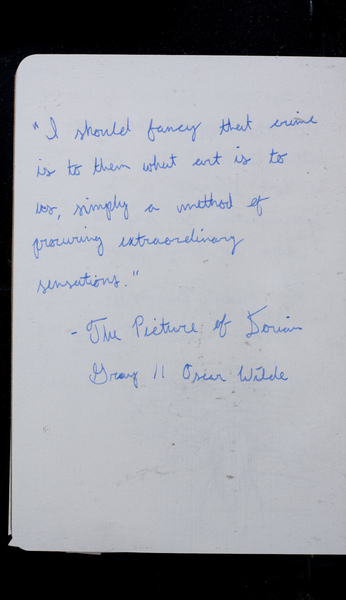 "I should fancy that crime
is to them what art is to
us, simply a method of
procuring extraordinary
sensations."
- The Picture of Dorian
Gray // Oscar Wilde